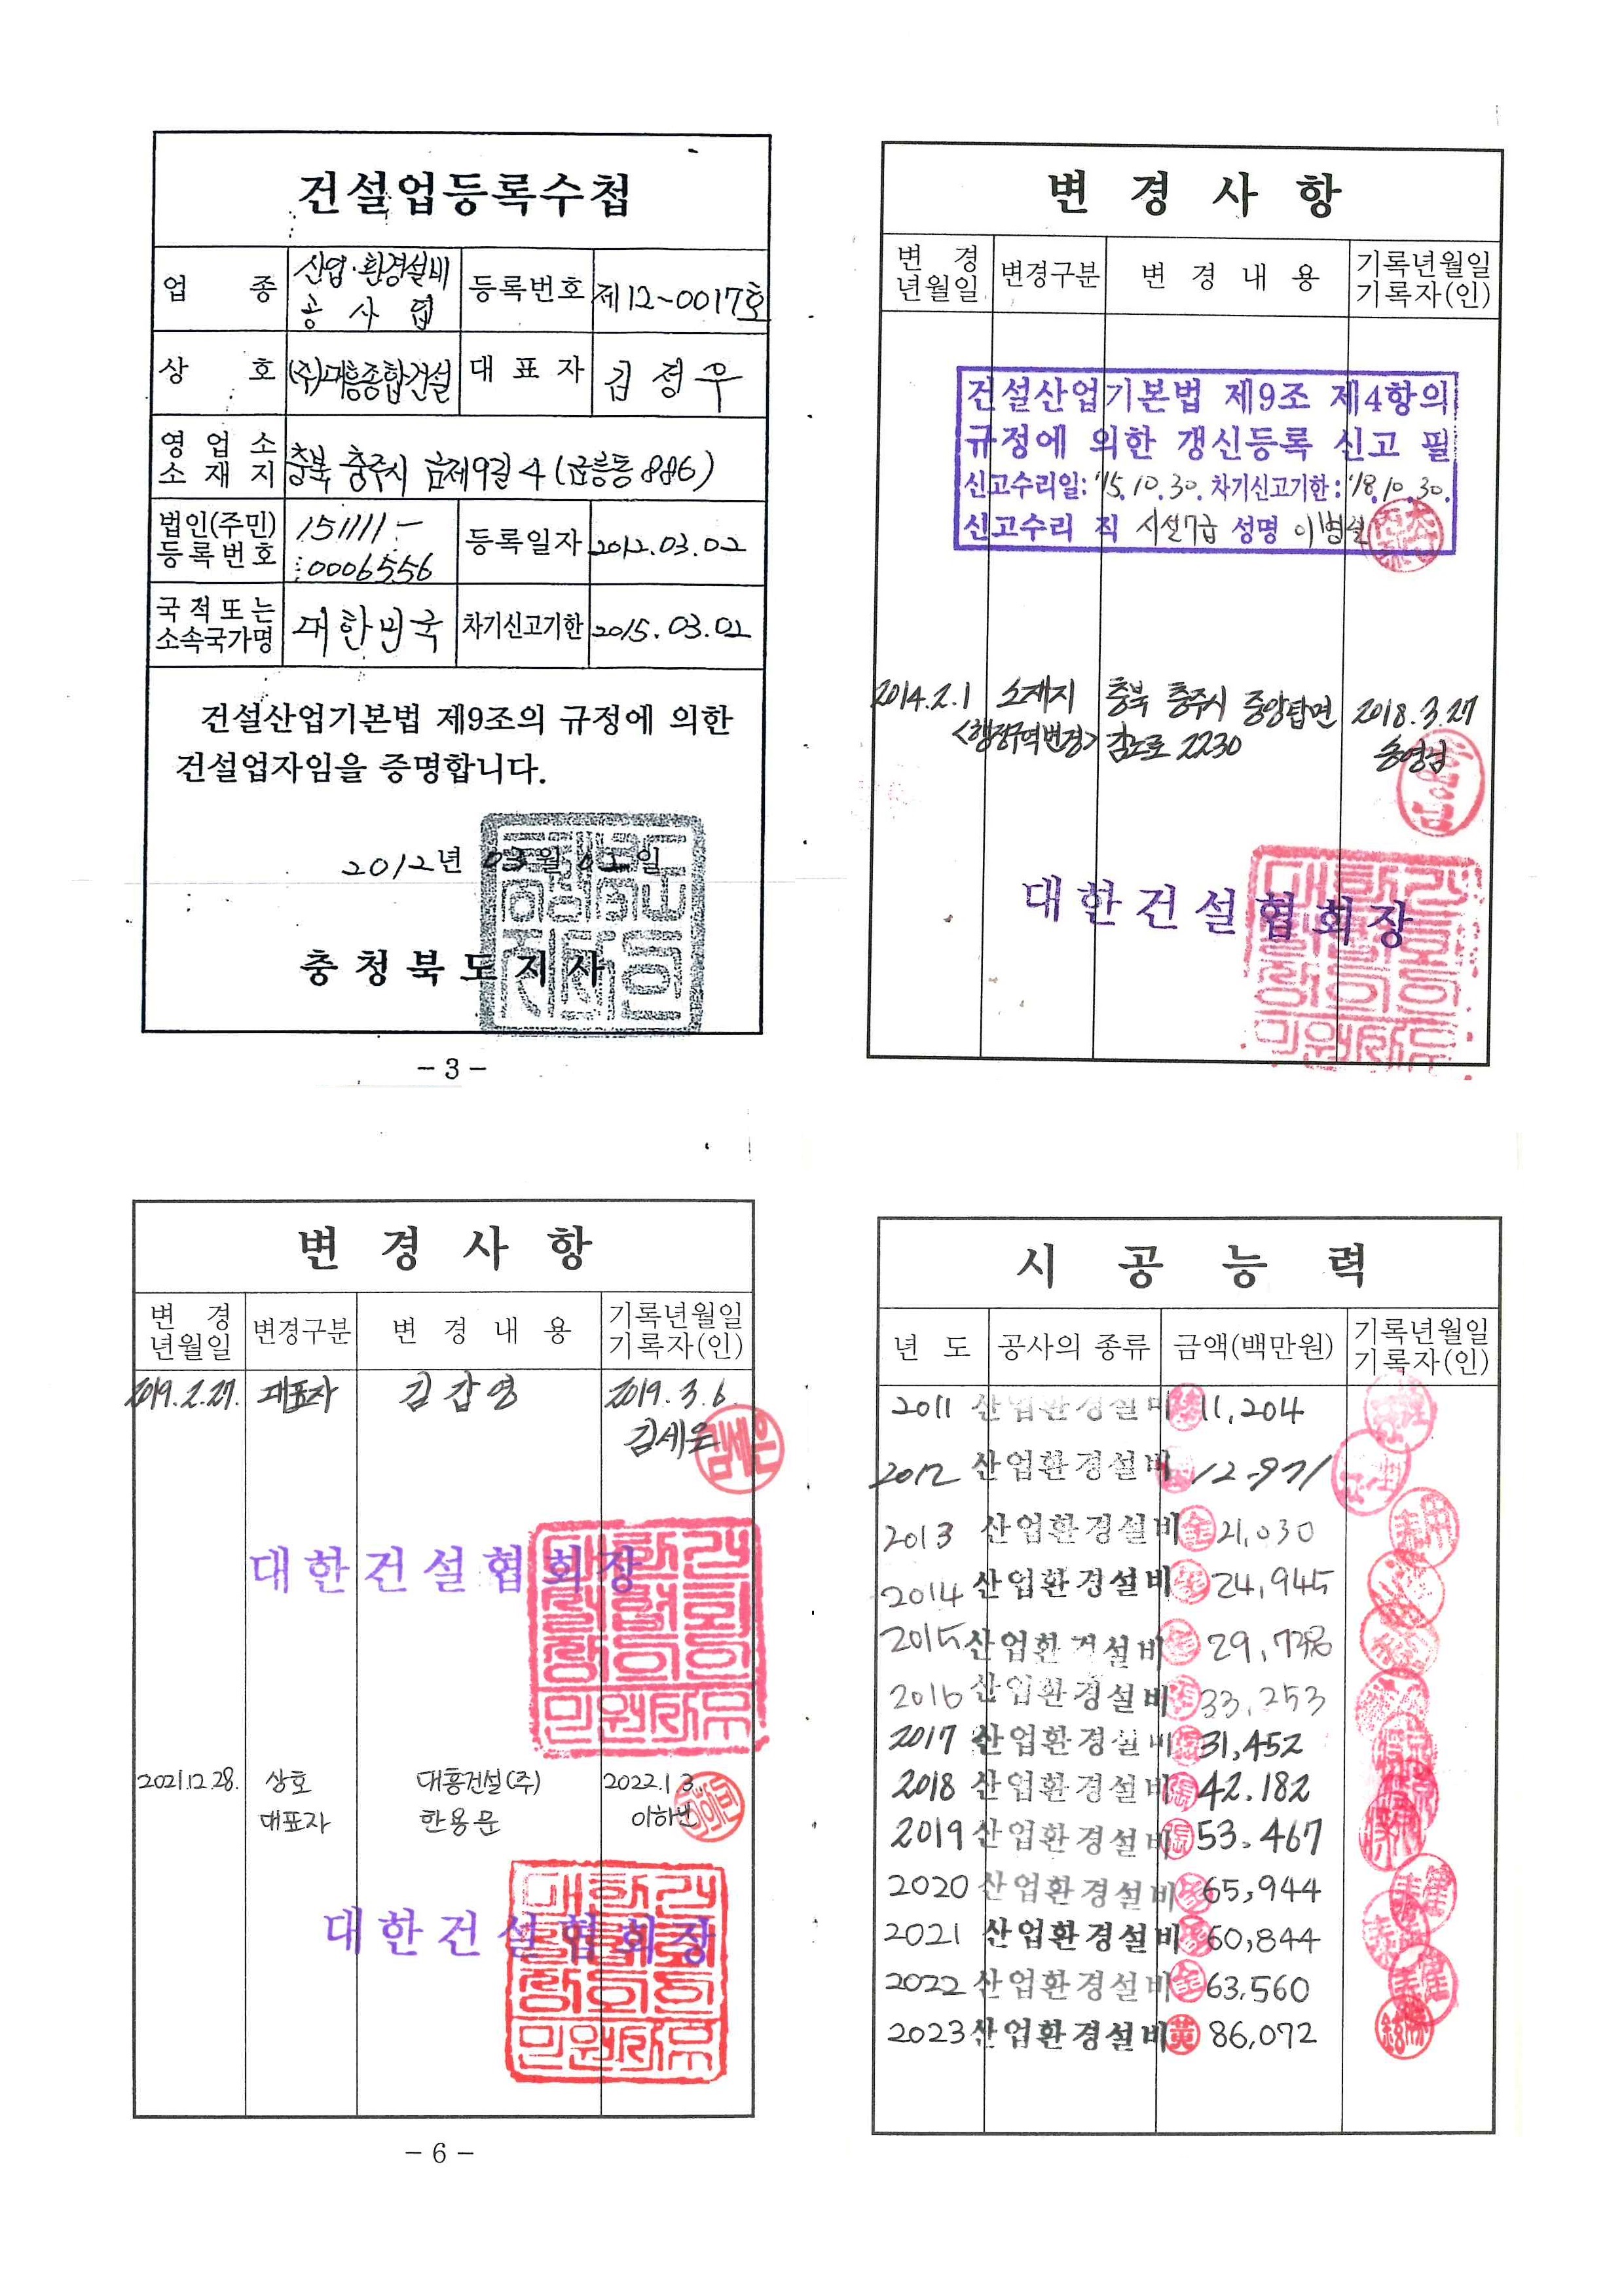 건설업등록수첩
업 종 산업·환경설비 공사업 등록번호 제12-0017호
상 호 (주)대흥종합건설 대표자 김정우
영업소 소재지 충북 충주시 금제9길 4 (금릉동 886)
법인(주민) 등록번호 151111-0006556 등록일자 2012.03.02
국적또는 소속국가명 대한민국 차기신고기한 2015.03.02
건설산업기본법 제9조의 규정에 의한
건설업자임을 증명합니다.
2012년 03월 02일
충청북도지사
- 3 -
변 경 사 항
변 경 년월일 변경구분 변 경 내 용 기록년월일 기록자(인)
건설산업기본법 제9조 제4항의
규정에 의한 갱신등록 신고 필
신고수리일: '15. 10. 30. 차기신고기한: '18. 10. 30.
신고수리 직 시설7급 성명
2014.2.1 소재지 충북 충주시 중앙탑면 2018.3.27
<행정구역변경> 감노로 2230
대한건설협회장
변 경 사 항
변 경 년월일 변경구분 변 경 내 용 기록년월일 기록자(인)
2019.2.27. 대표자 김갑영 2019.3.6
김세은
대한건설협회장
2021.12.28. 상호 대흥건설(주) 2022.1.3.
대표자 한용문
대한건설협회장
- 6 -
시 공 능 력
년 도 공사의 종류 금액(백만원) 기록년월일 기록자(인)
2011 산업환경설비 11,204
2012 산업환경설비 12,971
2013 산업환경설비 21,030
2014 산업환경설비 24,945
2015 산업환경설비
2016 산업환경설비 33,253
2017 산업환경설비 31,452
2018 산업환경설비 42,182
2019 산업환경설비 53,467
2020 산업환경설비 65,944
2021 산업환경설비 60,844
2022 산업환경설비 63,560
2023 산업환경설비 86,072